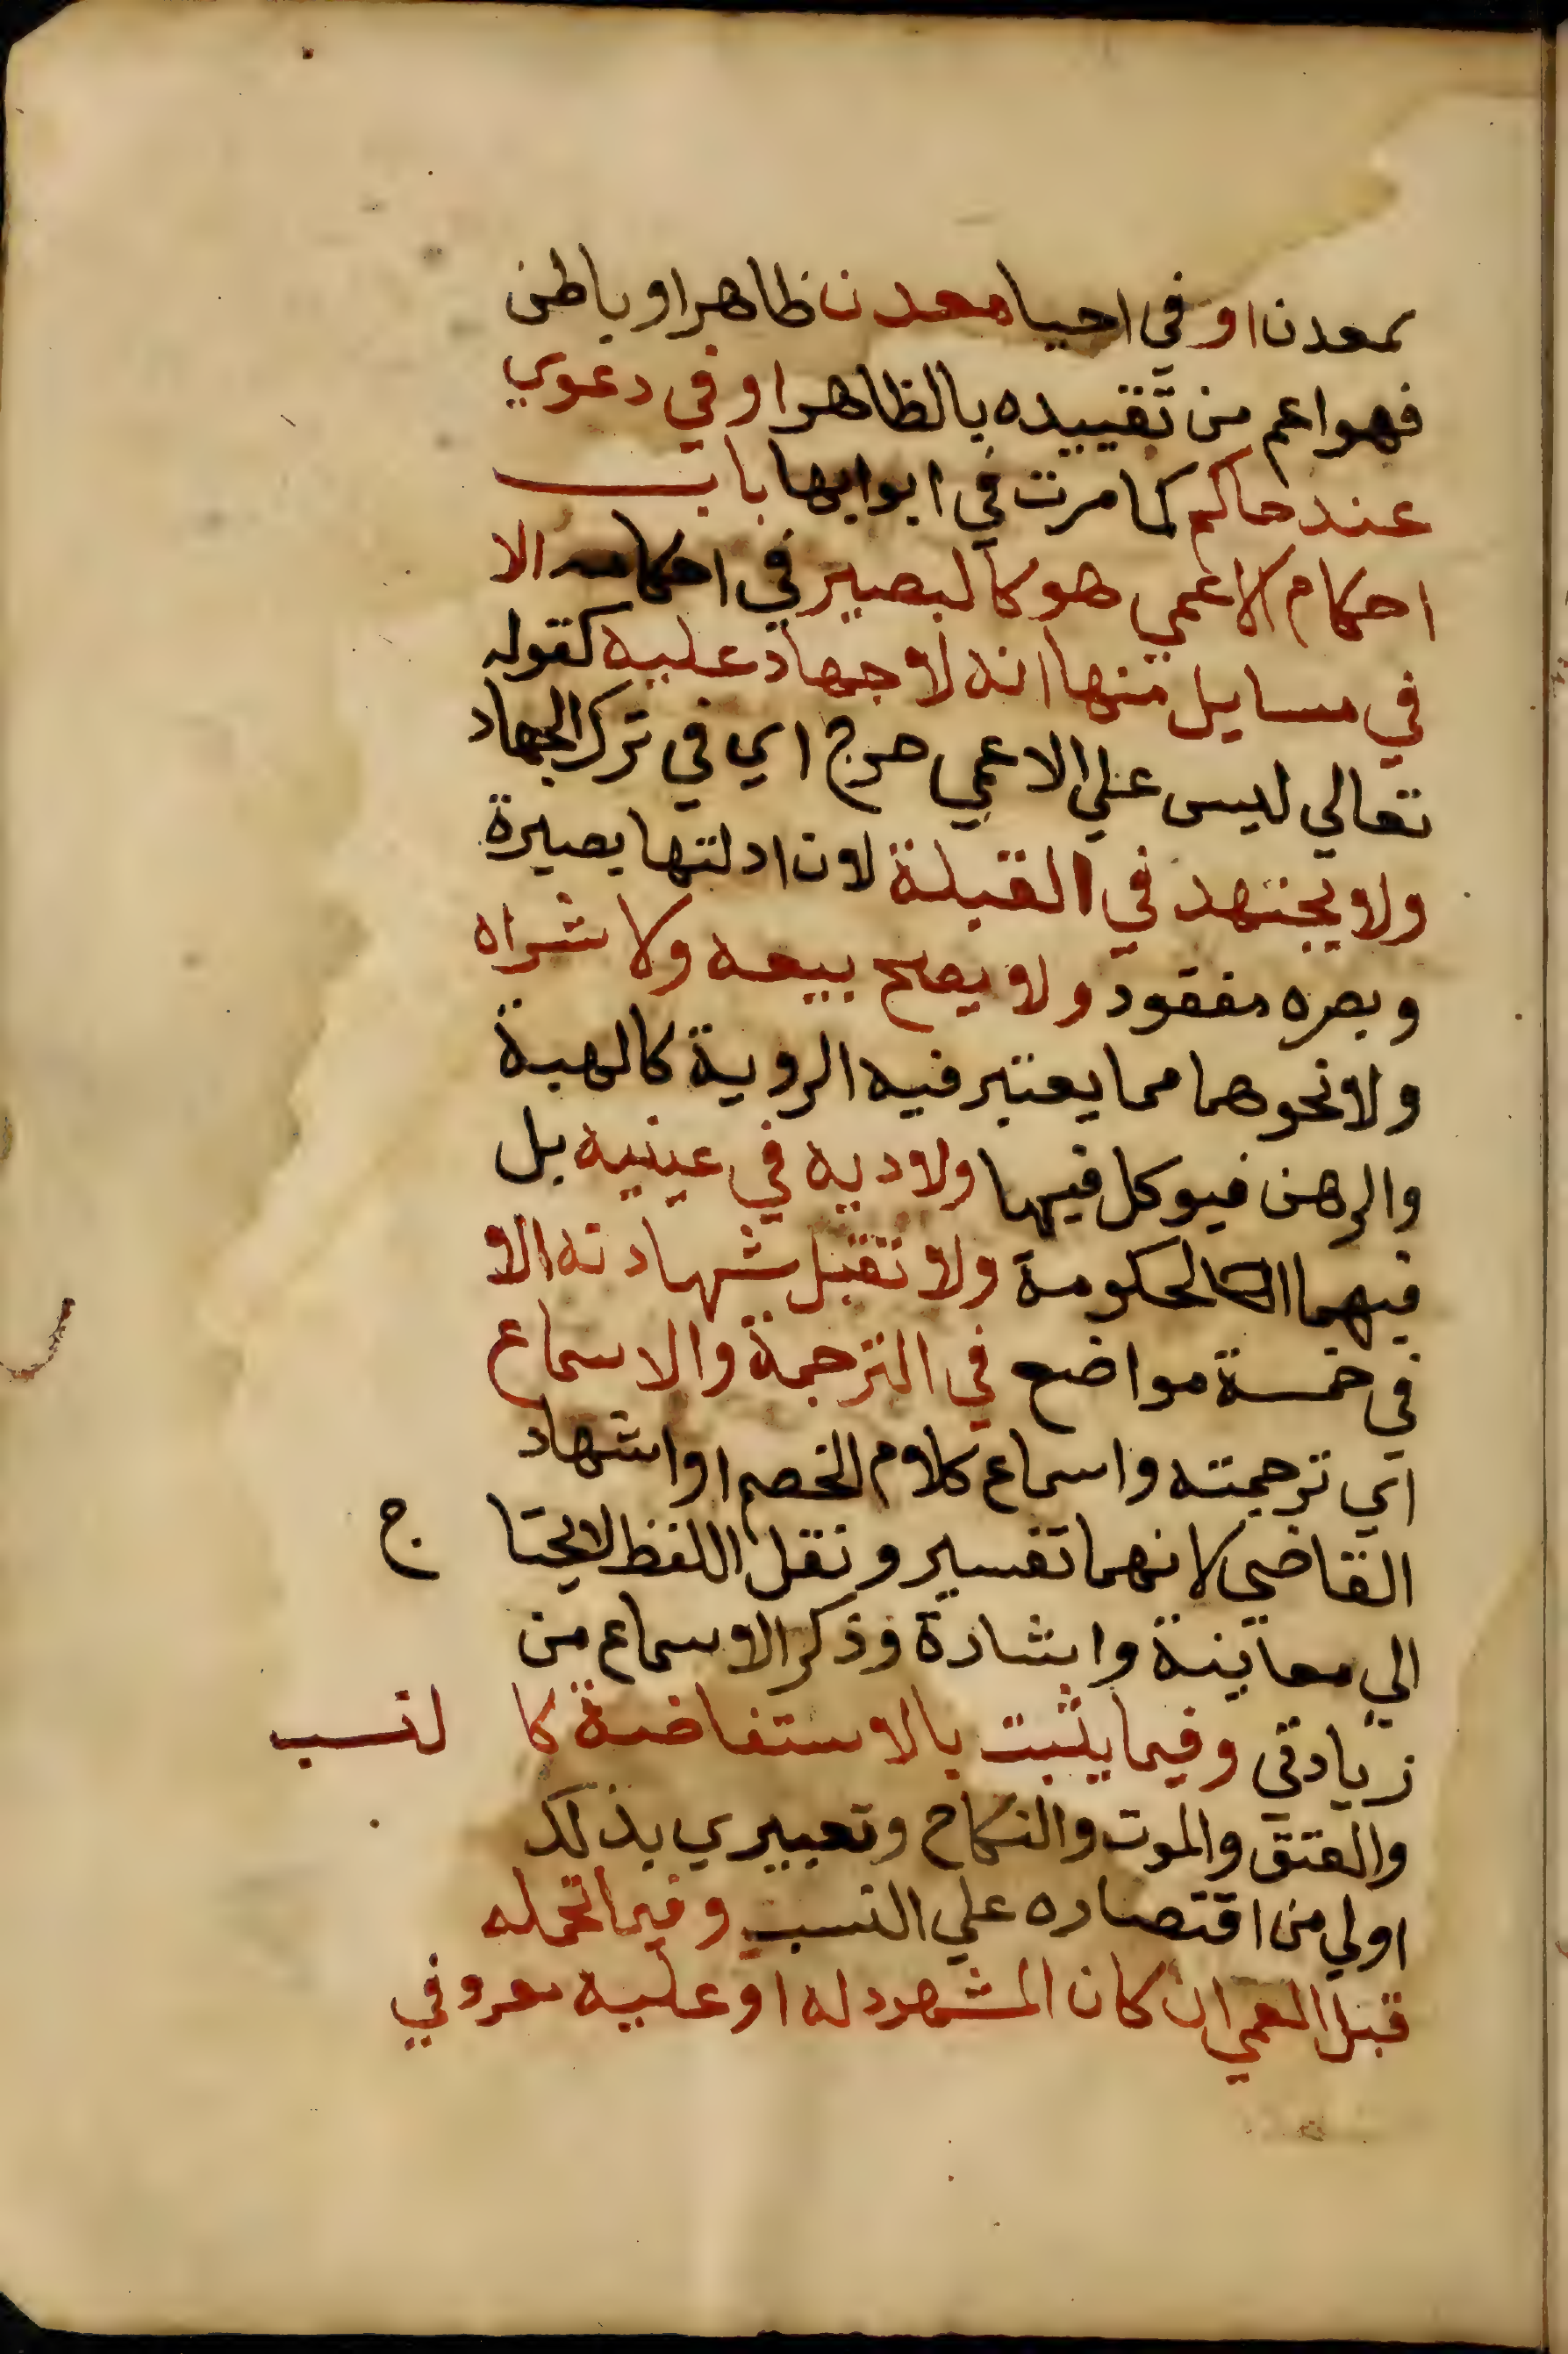 بمعدن او في احيا معدن ظاهر او باطن
فهو اعم من تقييده بالظاهر او في دعوي
عند حاكم كما مرت في ابوابها باب
احكام الاعمي هو كالبصير في احكامه الا
في مسايل منها انه لا جهاد عليه كقوله
تعالي ليس علي الاعمي حرج اي في ترك الجهاد
ولا يجتهد في القبلة لان ادلتها بصيرة
وبصره مفقود ولا يصح بيعه ولا شراه
ولا نحوهما مما يعتبر فيه الروية كالهبة
والرهن فيوكل فيها ولا دية في عينيه بل
فيهما الحكومة ولا تقبل شهادته الا
في خمسة مواضع في الترجمة والاسماع
اي ترجمته واسماع كلام الخصم او اشهاد
القاضي لانهما تفسير ونقل اللفظ لا يحتاج
الي معاينة واشارة وذكر الاسماع من
زيادتي وفيما يثبت بالاستفاضة كالنسب
والعتق والموت والنكاح وتعبيري بذلك
اولي من اقتصاره علي النسب وفيما تحمله
قبل العمي ان كان المشهود له او عليه معروفي